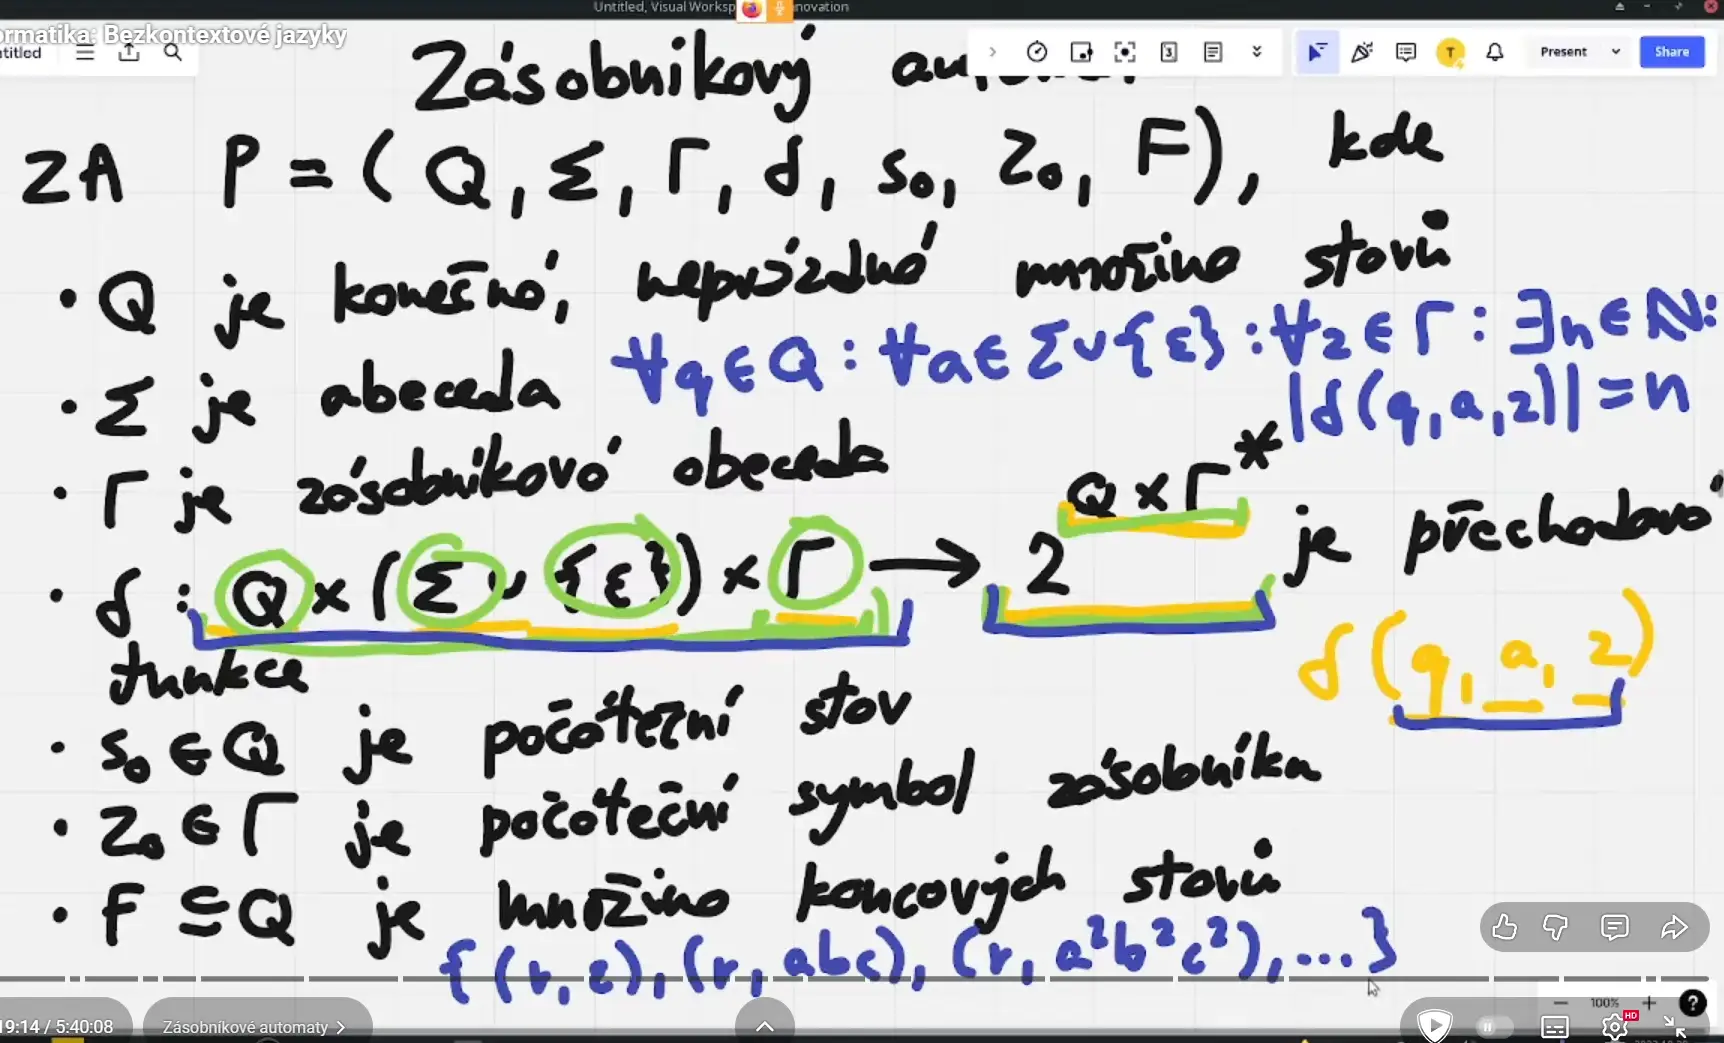 Untitled, Visual Worksp
nnovation
ormatika: Bezkontextové jazyky
ntitled
Present
Share
Zásobníkový
ZA P = (Q, Σ, Γ, δ, s₀, Z₀, F), kde
• Q je konečná, neprázdná množina stavů
∀q∈Q : ∀a∈Σ∪{ε} : ∀z∈Γ : ∃n∈ℕ:
• Σ je abeceda
|δ(q,a,z)| = n
• Γ je zásobníková abeceda
• δ : Q × (Σ ∪ {ε}) × Γ → 2^(Q×Γ*) je přechodová
funkce
δ(q, a, z)
• s₀ ∈ Q je počáteční stav
• Z₀ ∈ Γ je počáteční symbol zásobníku
• F ⊆ Q je množina koncových stavů
{(r,ε), (r, abc), (r, a²b²c²), ...}
19:14 / 5:40:08
Zásobníkové automaty
100%
HD